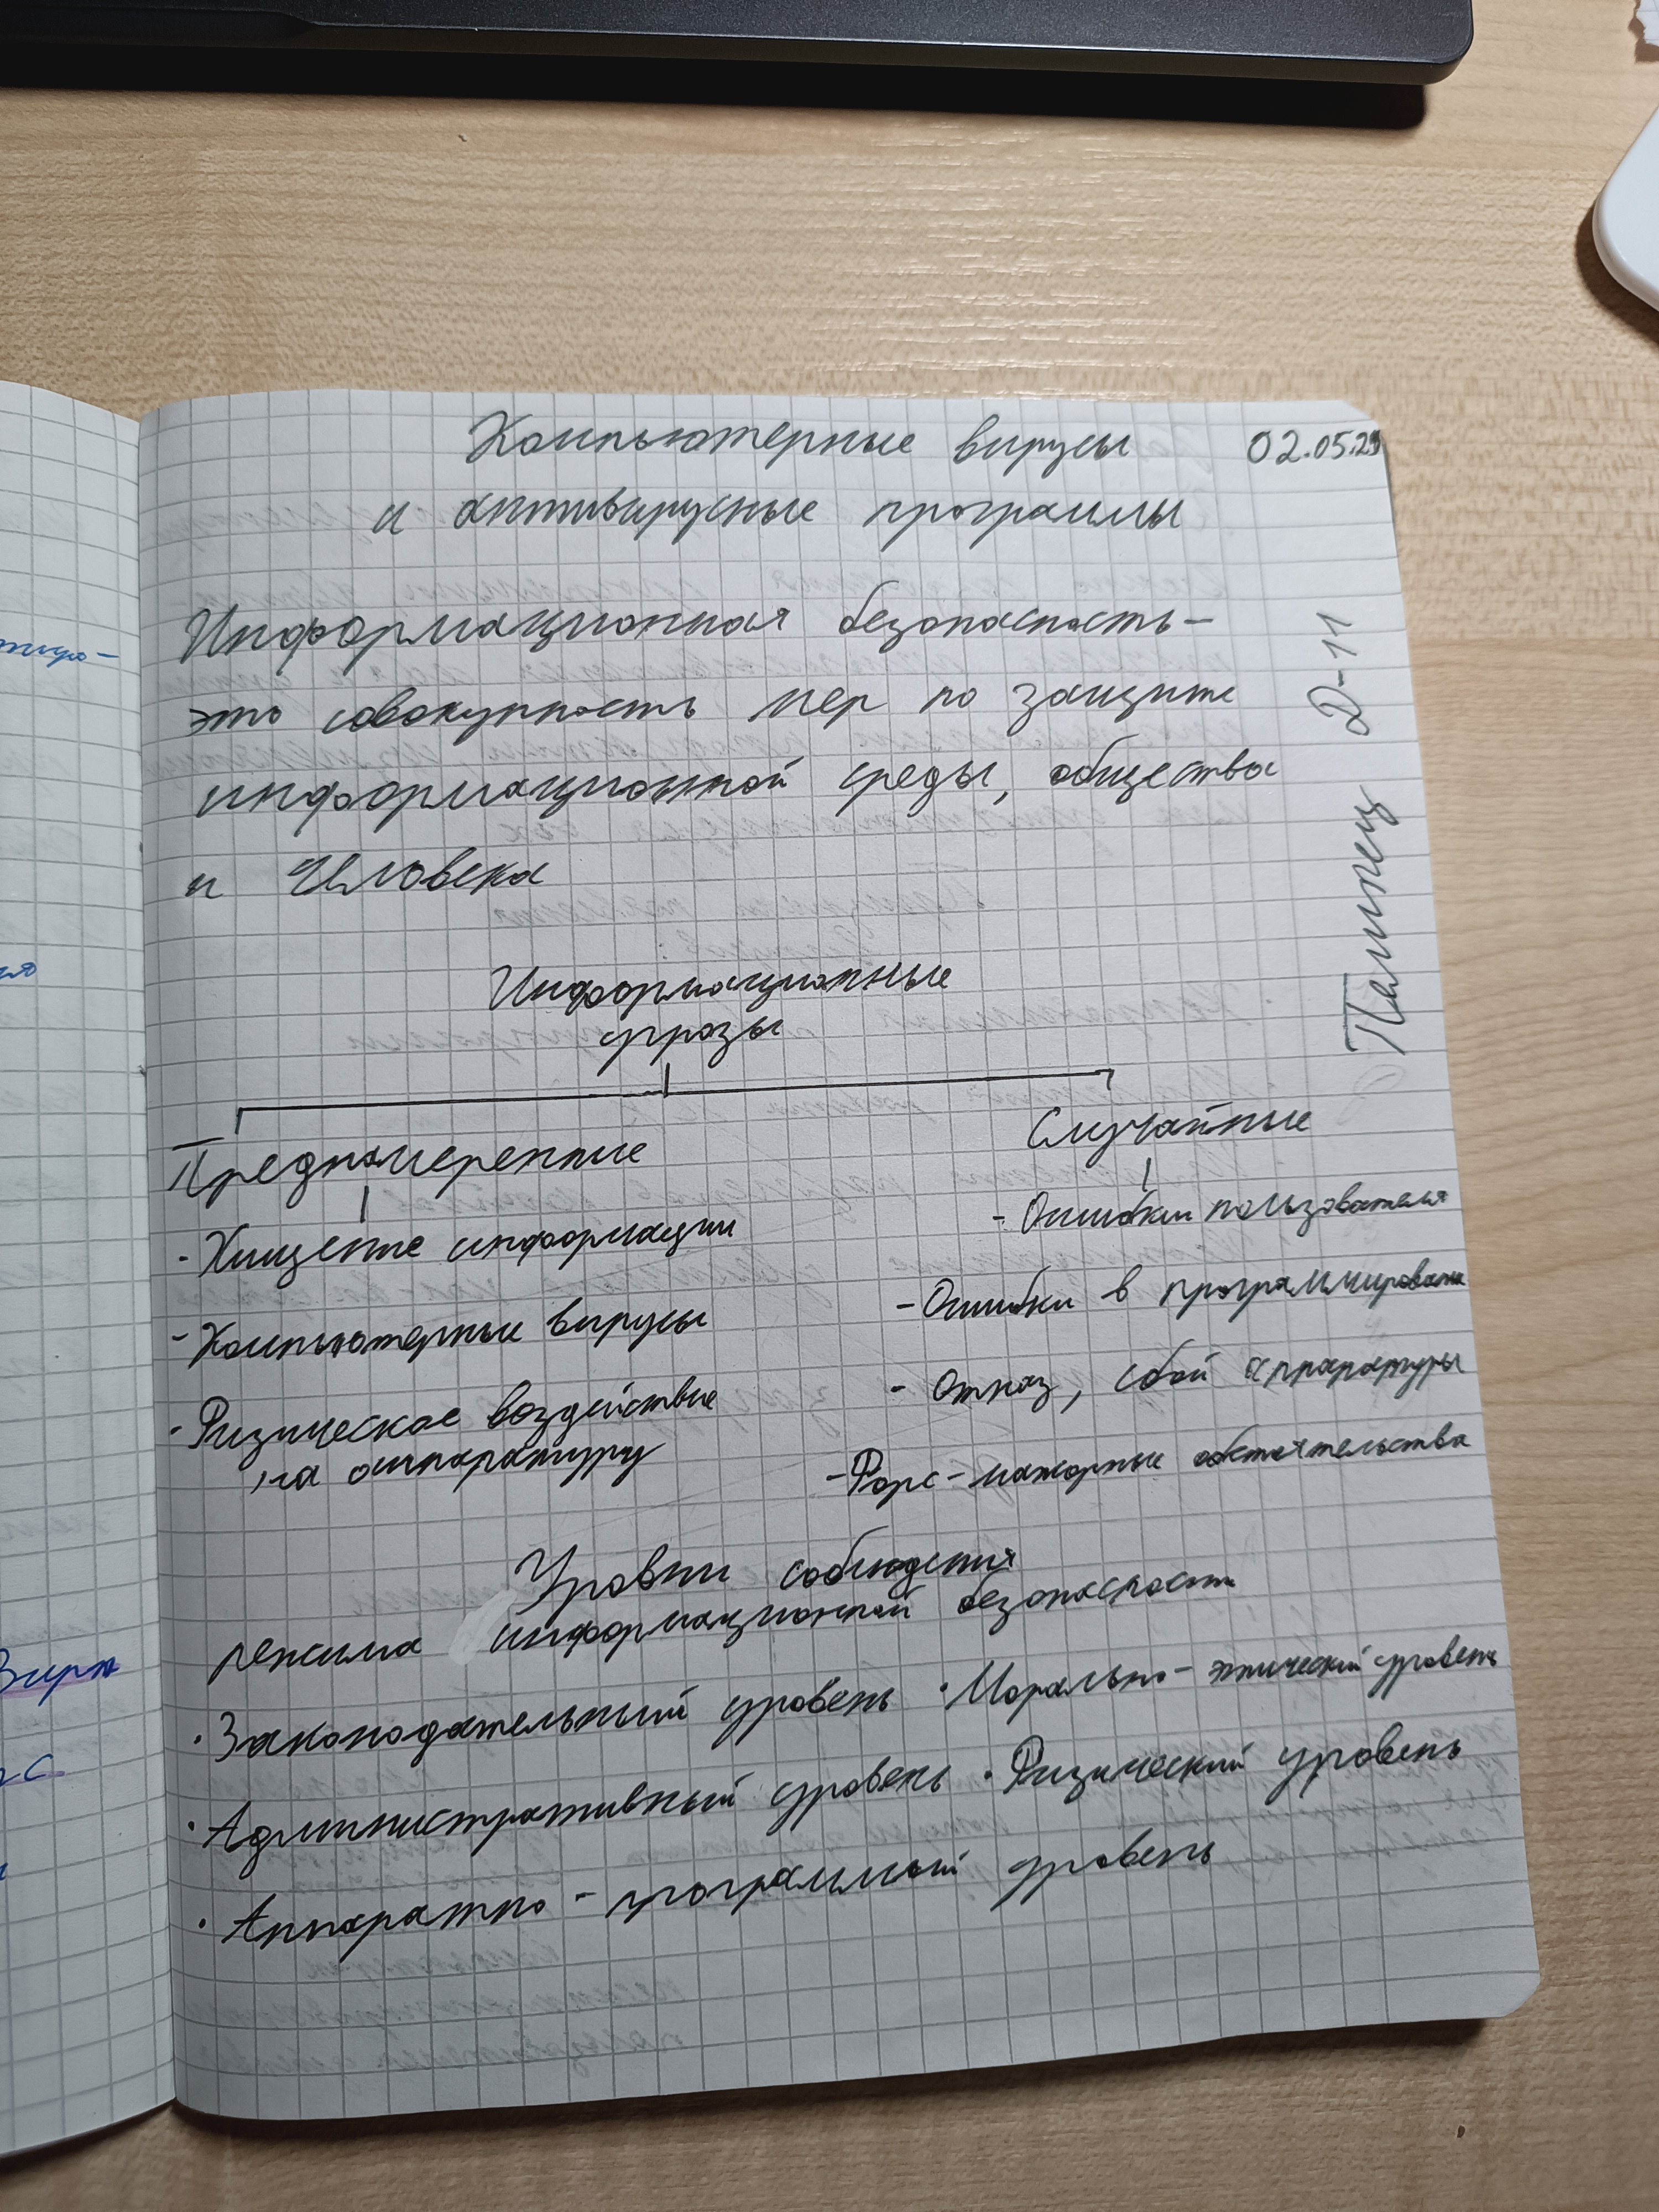 Компьютерные вирусы 02.05.25
и антивирусные программы
Информационная безопасность -
это совокупность мер по защите
информационной среды, общества
и Человека
Д-11
Информационные
угрозы
Преднамеренные
Случайные
- Хищение информации
- Ошибки пользователя
- Компьютерные вирусы
- Ошибки в программировани
- Физическое воздействие
на аппаратуру
- Отказ, сбой аппаратуры
- Форс-мажорные обстоятельства
Уровни соблюдения
режима информационной безопасности
· Законодательный уровень · Морально-этический уровень
· Административный уровень · Физический уровень
· Аппаратно-програмный уровень